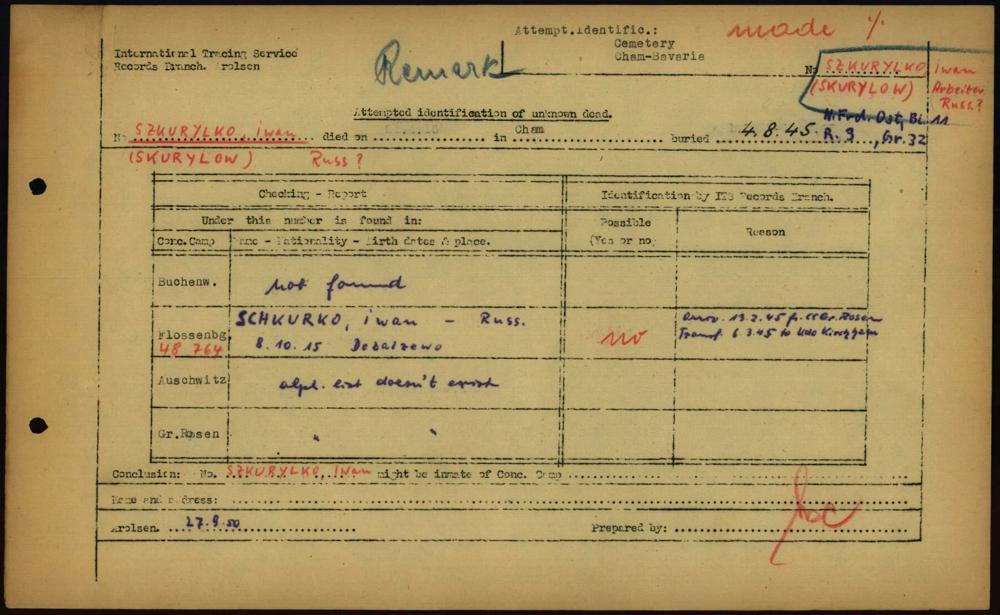 Attempt.Identific.: made ٪
Cemetery
Cham-Bavaria
International Tracing Service
Records Branch. Arolsen
Remark
No SZKURYLKO, iwan
(SKURYLOW) Arbeiter
Russ?
Attempted identification of unknown dead.
N.Frd. Ost, Bl. 11
R. 3, Gr. 32
No SZKURYLKO, iwan died on in Cham buried 4.8.45.
(SKURYLOW) Russ?
Checking - Report
Identification by ITS Records Branch.
Under this number is found in:
Possible
(Yes or no)
Reason
Conc.Camp
Name - Nationality - Birth dates & place.
Buchenw. not found
Flossenbg. SCHKURKO, iwan - Russ.
48 764 8.10.15 Debalzewo
no
arrv. 13.2.45 fr. CC Gr. Rosen
Transf. 6.3.45 to Kdo
Auschwitz alph. list doesn't exist
Gr.Rosen " "
Conclusion: No. SZKURYLKO, iwan might be inmate of Conc. Camp
Name and address:
Arolsen. 27.9.50
Prepared by: